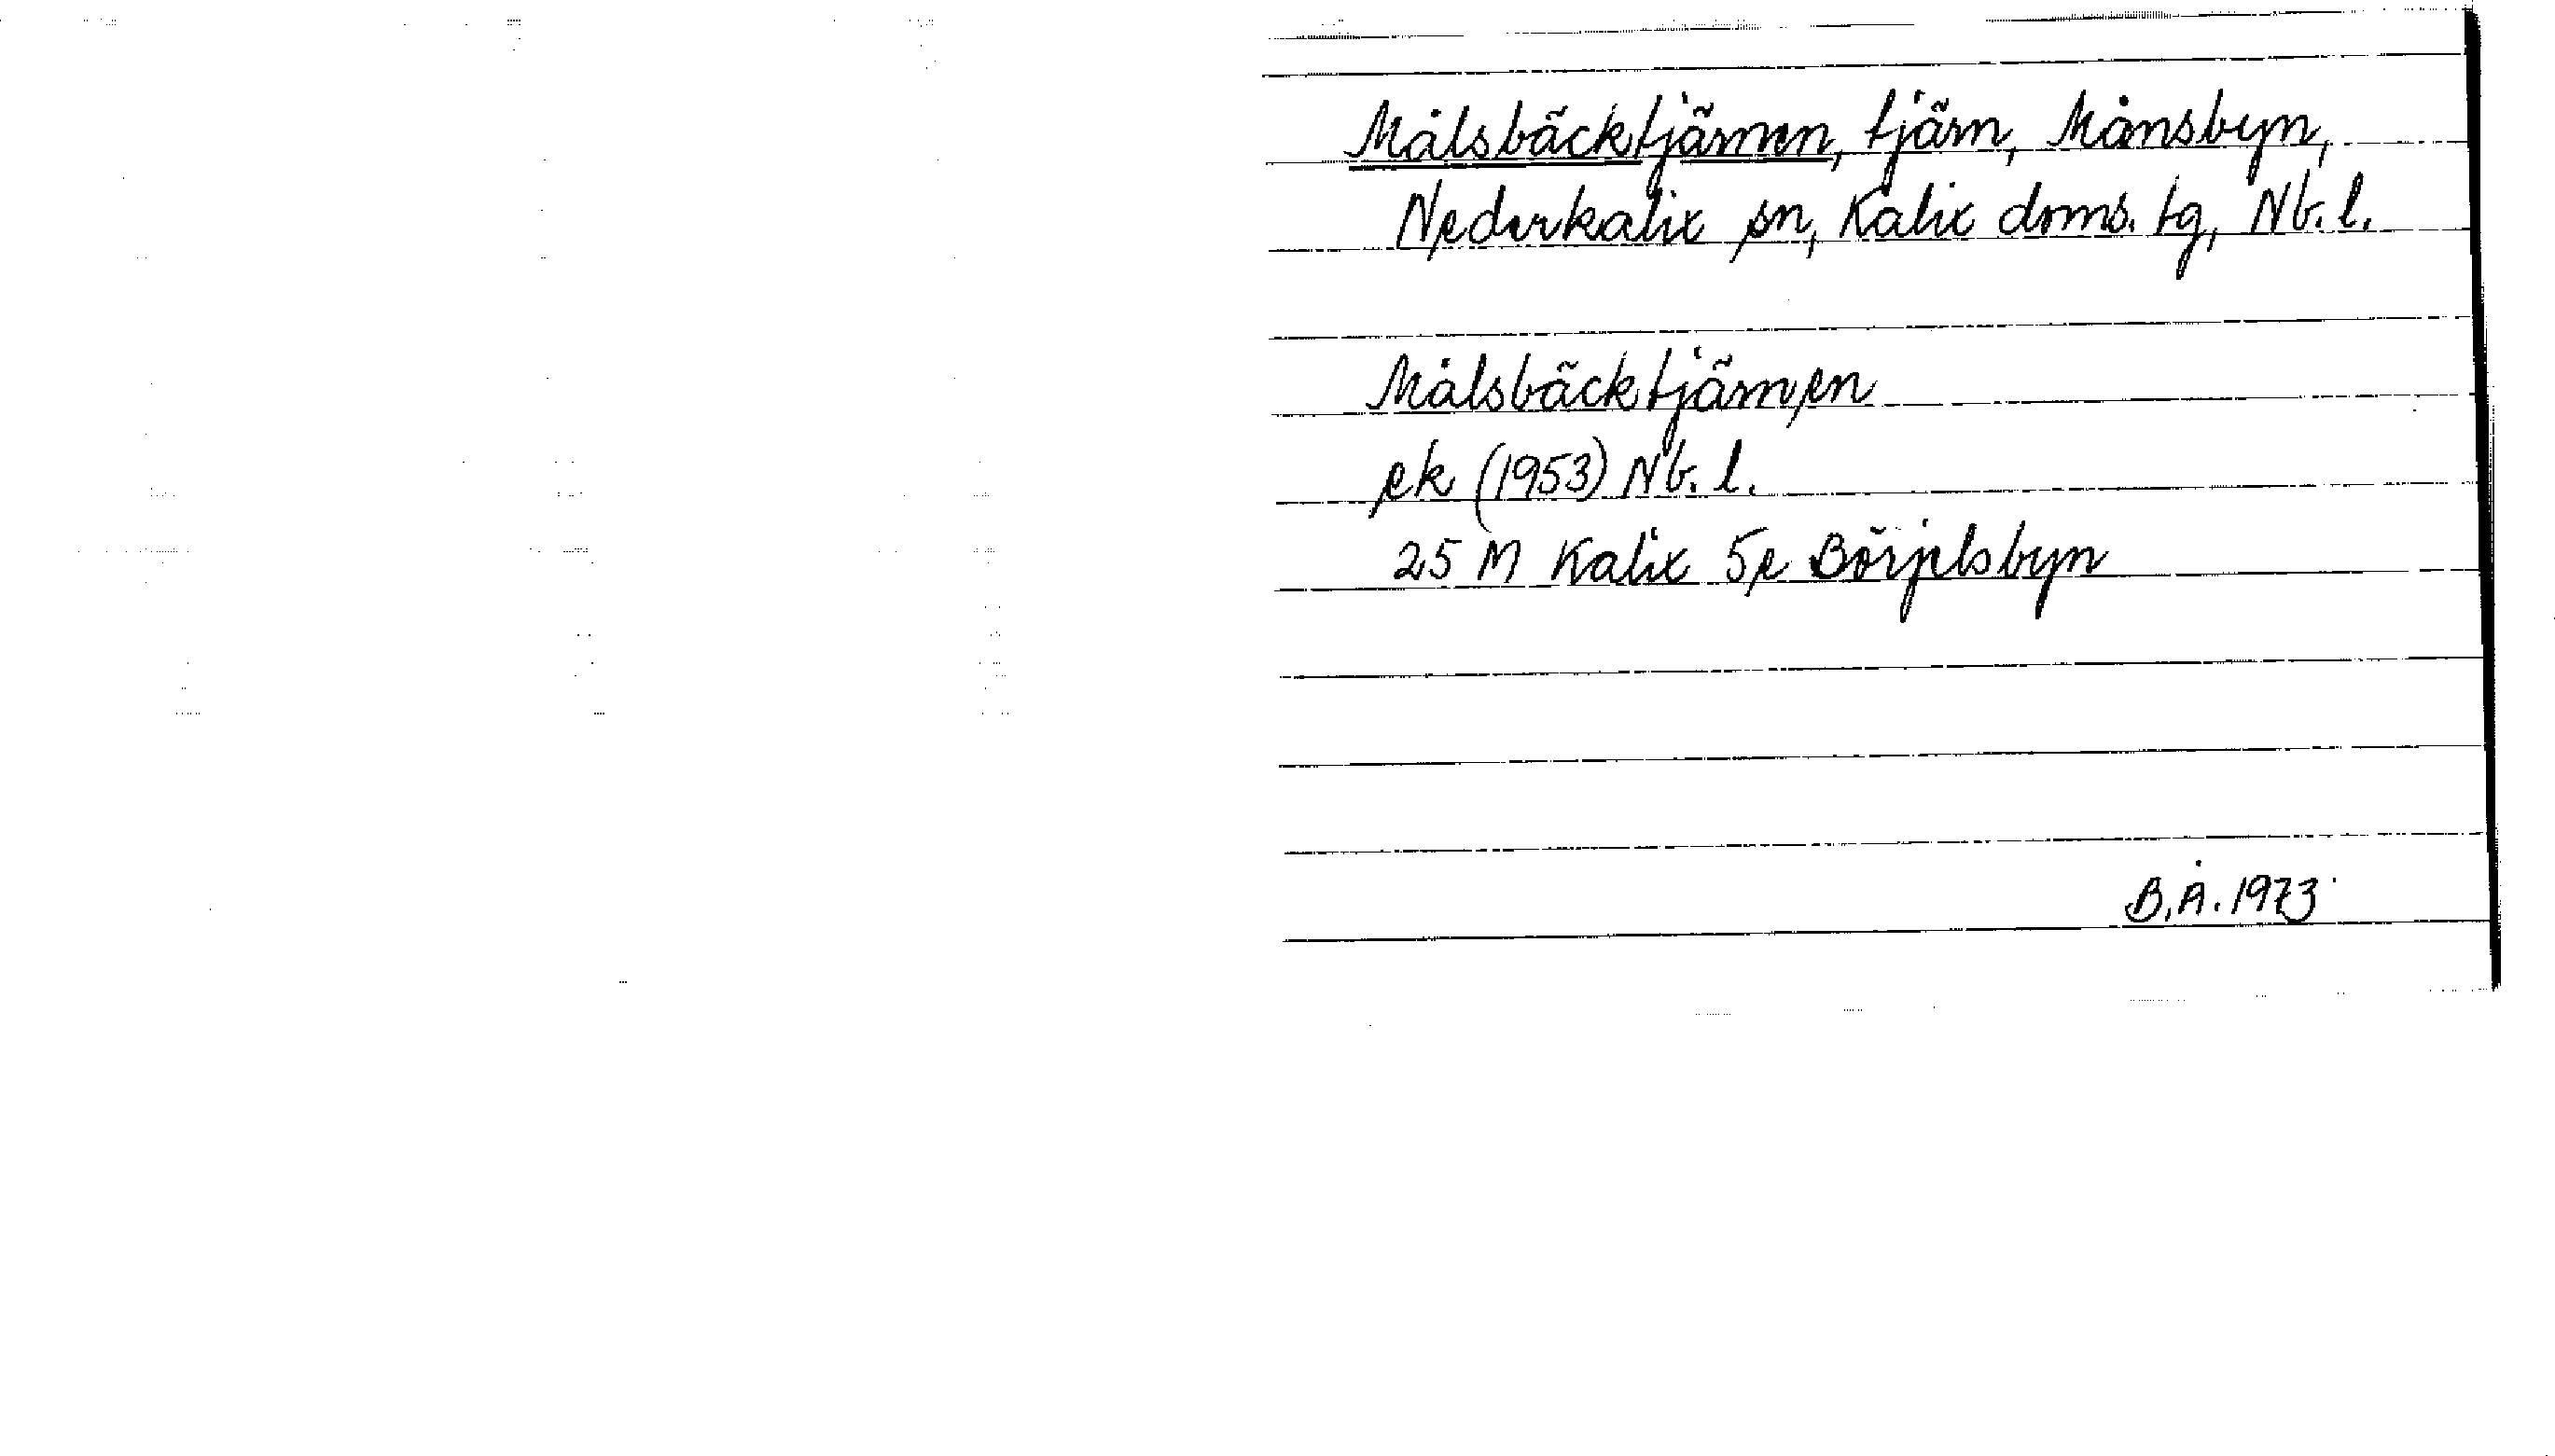 Målsbäcktjärnen, tjärn, Månsbyn,
Nederkalix sn, Kalix doms. tg, Nb. l.
Målsbäcktjärnen
ek (1953) Nb. l.
25 M Kalix 5e Börjelsbyn
B.Å. 1973